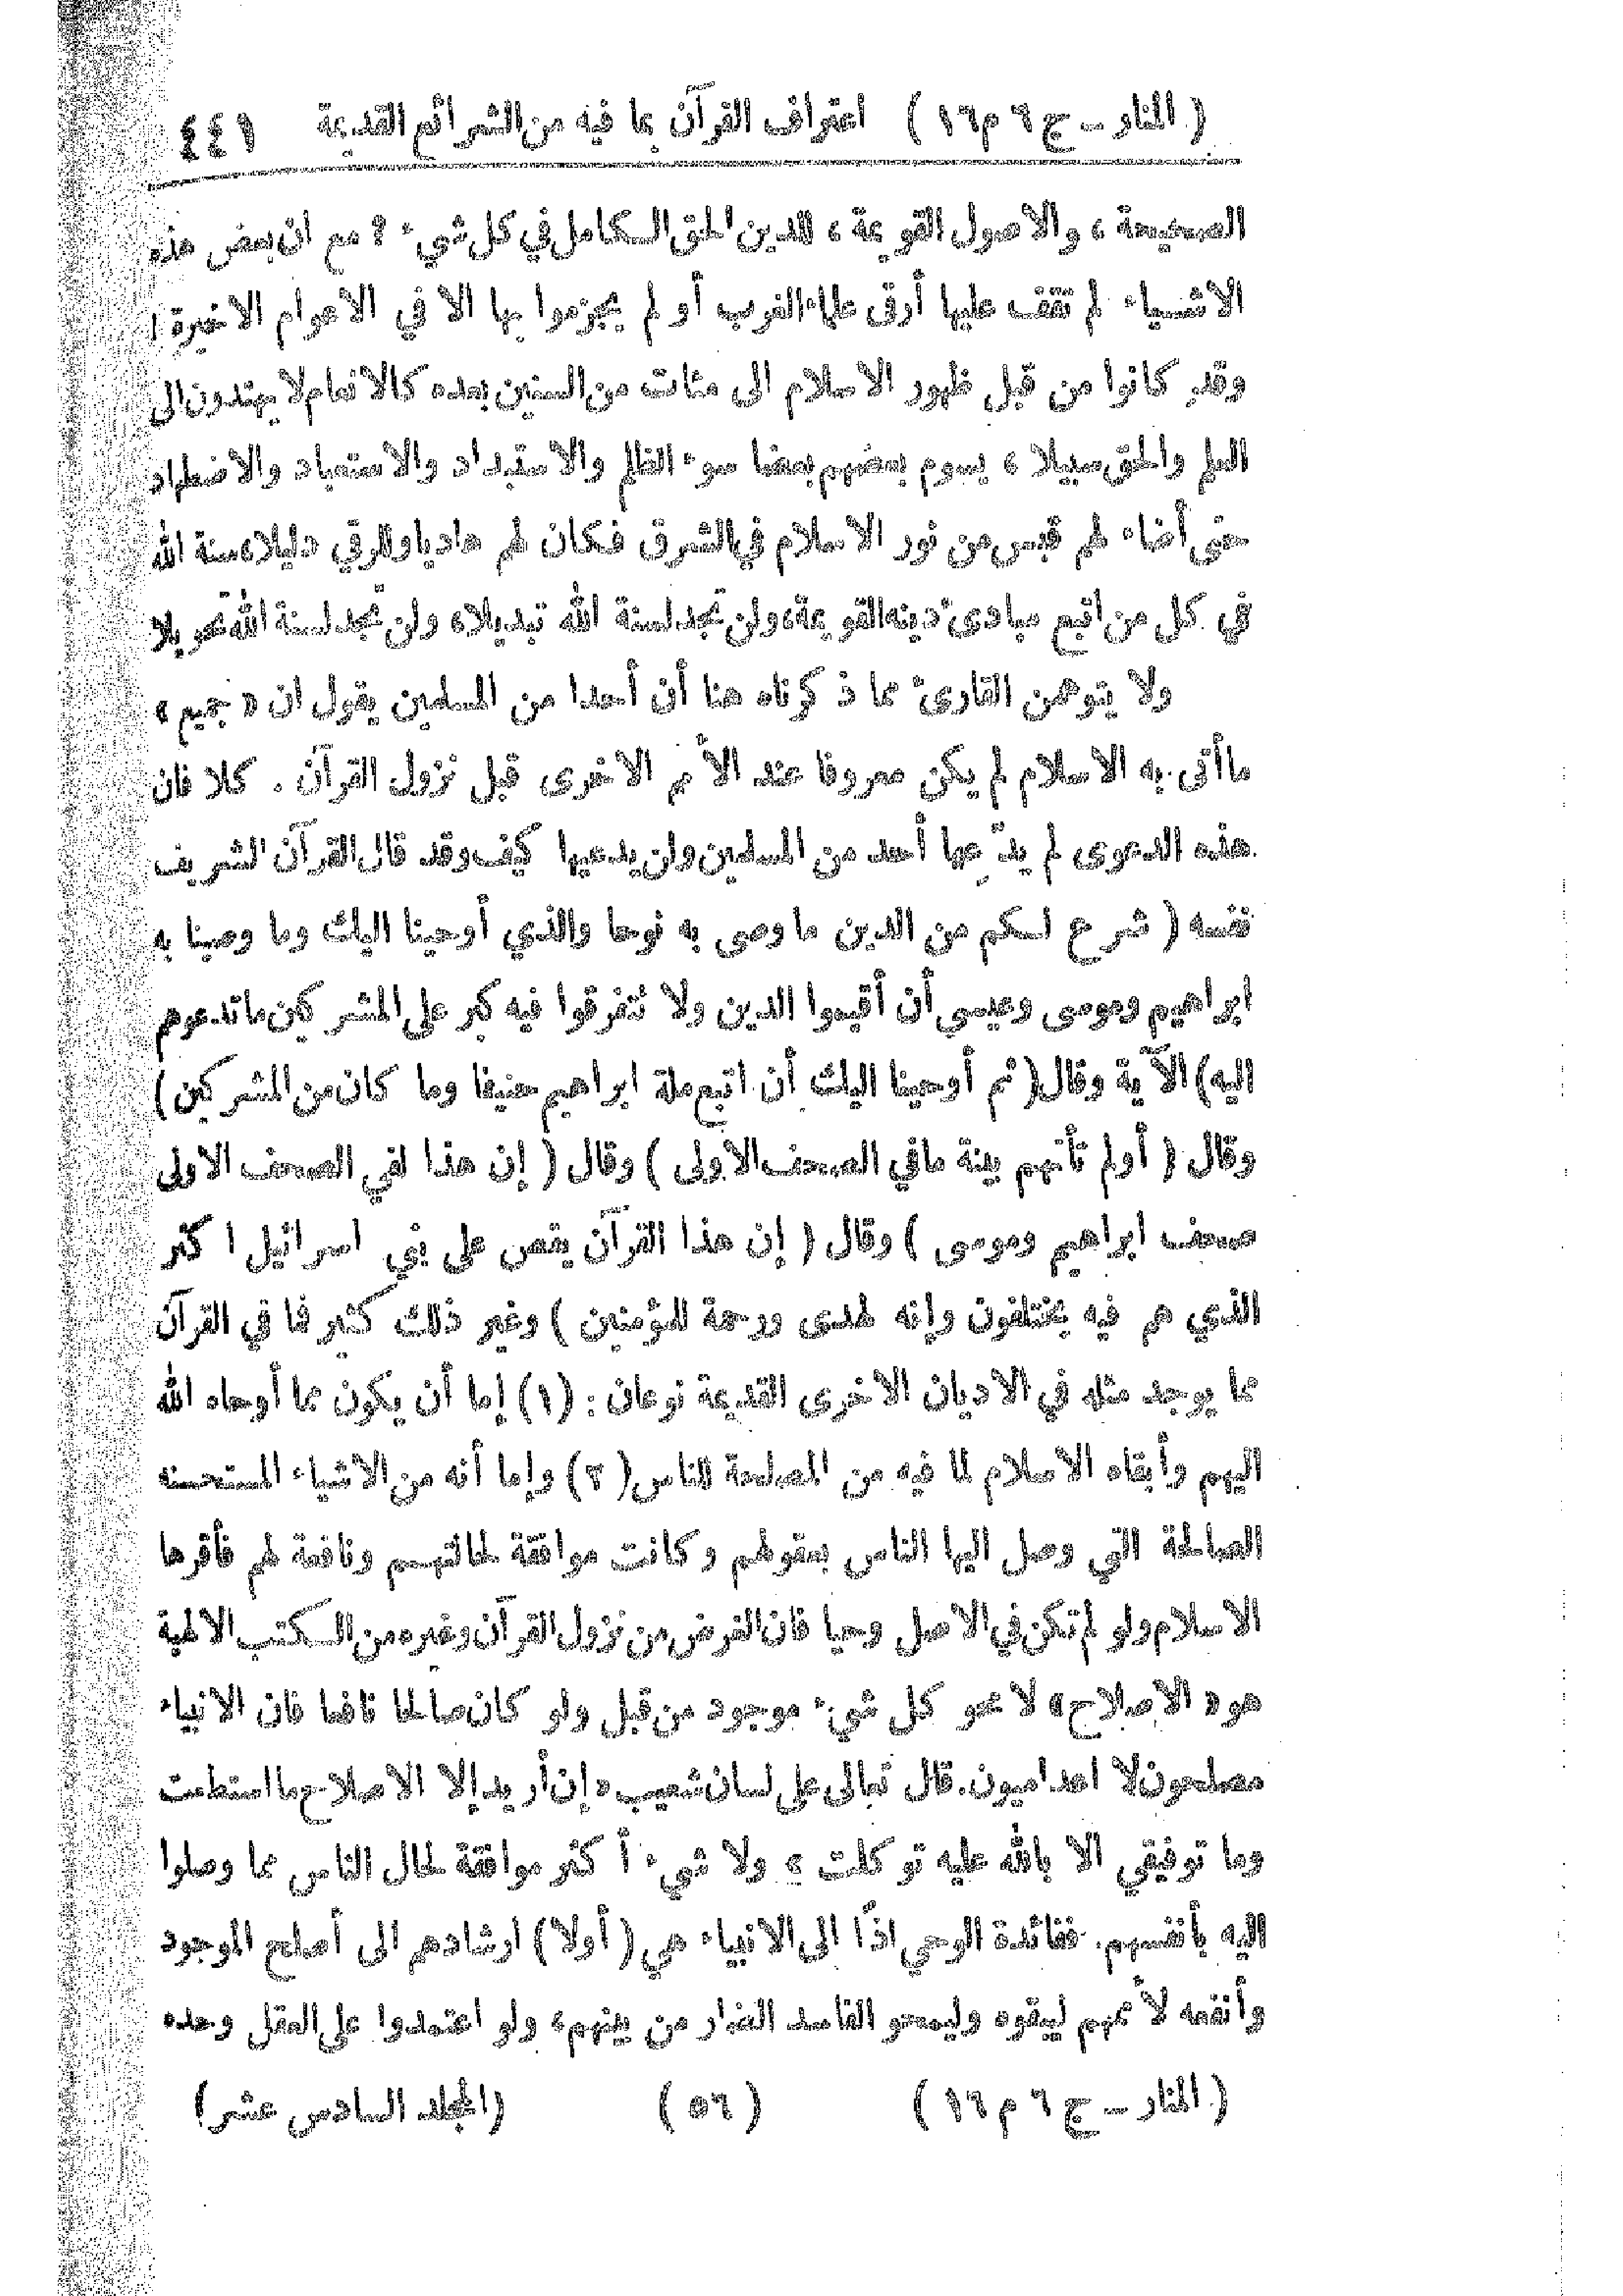 (المنار ـ ج ٦ م ١٦) اعتراف القرآن بما فيه من الشرائع القديمة ٤٤١
الصحيحة، والاصول القويمة، للدين الحق الكامل في كل شيء؟ مع ان بعض هذه
الاشياء لم تقف عليها أرقى علماء الغرب أو لم يجزموا بها الا في الاعوام الاخيرة!
وقد كانوا من قبل ظهور الاسلام الى مئات من السنين بعده كالانعام لا يهتدون الى
العلم والحق سبيلا، يسوم بعضهم بعضا سوء الظلم والاستبداد والاستعباد والاضطهاد
حتى أضاء لهم قبس من نور الاسلام في الشرق فكان لهم هاديا وللرقي دليلا، سنة الله
في كل من اتبع مبادئ دينه القويمة، ولن تجد لسنة الله تبديلا، ولن تجد لسنة الله تحويلا
ولا يتوهمن القارئ مما ذكرناه هنا أن أحدا من المسلمين يقول ان «جميع»
ما أتى به الاسلام لم يكن معروفا عند الأمم الاخرى قبل نزول القرآن. كلا فان
هذه الدعوى لم يدّعِها أحد من المسلمين ولن يدعيها كيف وقد قال القرآن الشريف
نفسه (شرع لكم من الدين ما وصى به نوحا والذي أوحينا اليك وما وصينا به
ابراهيم وموسى وعيسى أن أقيموا الدين ولا تتفرقوا فيه كبر على المشركين ما تدعوهم
اليه) الآية وقال (ثم أوحينا اليك أن اتبع ملة ابراهيم حنيفا وما كان من المشركين)
وقال (أولم تأتهم بينة ما في الصحف الأولى) وقال (إن هذا لفي الصحف الاولى
صحف ابراهيم وموسى) وقال (إن هذا القرآن يقص على بني اسرائيل اكثر
الذي هم فيه يختلفون وإنه لهدى ورحمة للمؤمنين) وغير ذلك كثير فما في القرآن
مما يوجد مثله في الاديان الاخرى القديمة نوعان: (١) إما أن يكون مما أوحاه الله
اليهم وأبقاه الاسلام لما فيه من المصلحة للناس (٢) وإما أنه من الاشياء المستحسنه
الصالحة التي وصل اليها الناس بعقولهم وكانت موافقة لحالتهم ونافعة لهم فأقرها
الاسلام ولو لم تكن في الاصل وحيا فان الغرض من نزول القرآن وغيره من الكتب الالهية
هو «الاصلاح» لا محو كل شيء موجود من قبل ولو كان صالحا نافعا فان الانبياء
مصلحون لا اعداميون. قال تعالى على لسان شعيب «إن أريد إلا الاصلاح ما استطعت
وما توفيقي الا بالله عليه توكلت» ولا شيء أكثر موافقة لحال الناس مما وصلوا
اليه بأنفسهم. ففائدة الوحي اذًا الى الانبياء هي (أولا) ارشادهم الى أصلح الموجود
وأنفعه لأممهم ليبقوه وليمحو الفاسد الضار من بينهم، ولو اعتمدوا على العقل وحده
(المنار ـ ج ٦ م ١٦) (٥٦) (المجلد السادس عشر)